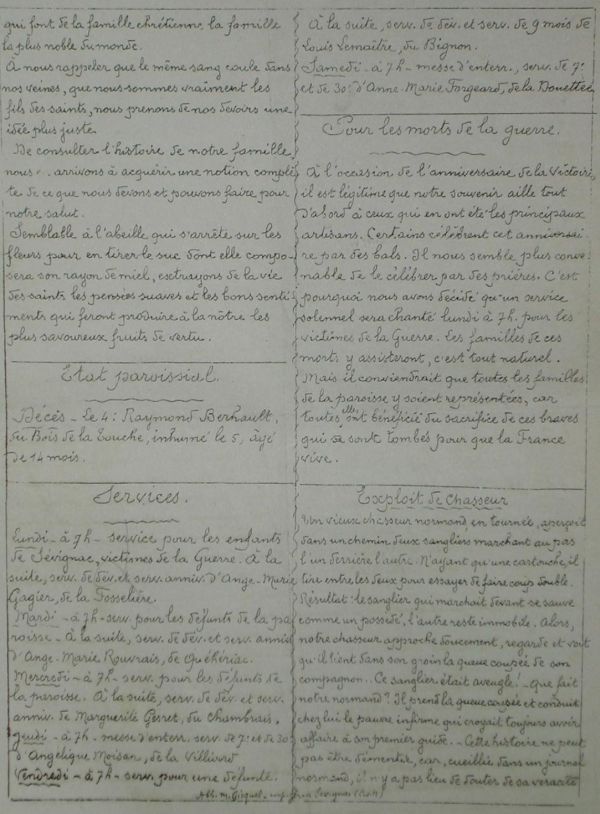 qui font de la famille chrétienne, la famille
la plus noble du monde.
À nous rappeler que le même sang coule dans
nos veines, que nous sommes vraiment les
fils des saints, nous prenons de nos devoirs une
idée plus juste.
De consulter l'histoire de notre famille,
nous arrivons à acquérir une notion complè
te de ce que nous devons et pouvons faire pour
notre salut.
Semblable à l'abeille qui s'arrête sur les
fleurs pour en tirer le suc dont elle compo-
sera son rayon de miel, extrayons de la vie
des saints les pensées suaves et les bons senti
ments qui feront produire à la nôtre les
plus savoureux fruits de vertu.
Etat paroissial.
Décès - Le 4 : Raymond Bernault,
du Bois de la Touche, inhumé le 5, âgé
de 14 mois.
Services.
Lundi - à 7h - service pour les enfants
de Sévignac, victimes de la Guerre. À la
suite, serv. de dév. et serv. anniv. d'Ange-Marie
Gagier, de la Fosselière.
Mardi - à 7h - serv. pour les défunts de la pa
roisse - À la suite, serv. de dév. et serv. anniv
d'Ange-Marie Rouvrais, de Quéhériac.
Mercredi - à 7h - serv. pour les défunts de
la paroisse. À la suite, serv. de dév. et serv.
anniv. de Marguerite Gesret, du Chambrais.
Jeudi - à 7h - messe d'enterr. serv. de 7e et de 30
d'Angélique Moisan, de la Villivord
Vendredi - à 7h - serv. pour une défunte.
À la suite, serv. de dév. et serv. de 9 mois de
Louis Lemaître, du Bignon.
Samedi - à 7h - messe d'enterr., serv. de 7e
et de 30e d'Anne-Marie Forgeard, de la Douettée
Pour les morts de la guerre.
À l'occasion de l'anniversaire de la Victoire,
il est légitime que notre souvenir aille tout
d'abord à ceux qui en ont été les principaux
artisans. Certains célèbrent cet anniversai
re par des bals. Il nous semble plus conve
nable de le célébrer par des prières. C'est
pourquoi nous avons décidé qu'un service
solennel sera chanté lundi à 7h. pour les
victimes de la Guerre. Les familles de ces
morts y assisteront, c'est tout naturel.
Mais il conviendrait que toutes les familles
de la paroisse y soient représentées, car
toutes elles ont bénéficié du sacrifice de ces braves
qui se sont tombés pour que la France
vive.
Exploit de Chasseur
Un vieux chasseur normand en tournée, aperçoit
dans un chemin deux sangliers marchant au pas
l'un derrière l'autre. N'ayant qu'une cartouche, il
tire entre les deux pour essayer de faire coup double.
Résultat : le sanglier qui marchait devant se sauve
comme un possédé, l'autre reste immobile. Alors,
notre chasseur approche doucement, regarde et voit
qu'il tient dans son groin la queue coupée de son
compagnon.. Ce sanglier était aveugle ! - Que fait
notre normand ? Il prend la queue coupée et conduit
chez lui le pauvre infirme qui croyait toujours avoir
affaire à son premier guide. - Cette histoire ne peut
pas être démentie, car, cueillie dans un journal
normand, il n'y a pas lieu de douter de sa véracité